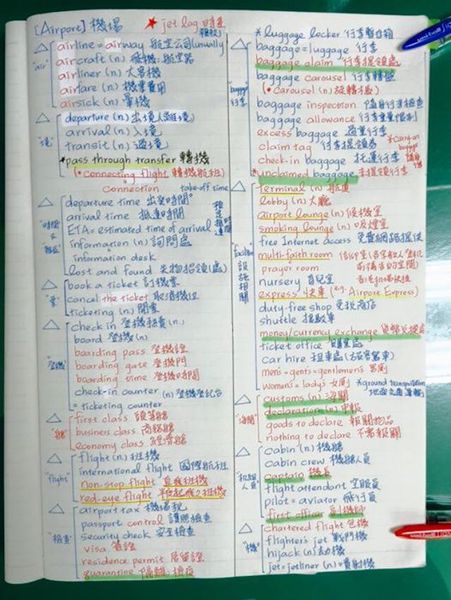 [Airport] 機場
★ jet lag 時差
airline = airway 航空公司 (usually
"air"
aircraft (n) 飛機、航空器
airliner (n) 大客機
airfare (n) 機票費用
airsick (n) 暈機
departure (n) 出境
arrival (n) 入境
transit (n) 過境
*pass through transfer 轉機
(*connecting flight 轉機航班)
connection
take-off time
departure time 出發時間
arrival time 抵達時間
ETA = estimated time of arrival
information (n) 詢問處
information desk
lost and found 失物招領(處)
book a ticket 訂機票
cancel the ticket 取消機位
ticketing (n) 開票
check in 登機報到 (n)
board 登機 (n)
boarding pass 登機證
boarding gate 登機門
boarding time 登機時間
"登機"
check-in counter (n) 登機登記台
= ticketing counter
first class 頭等艙
business class 商務艙
economy class 經濟艙
flight (n) 班機
"flight"
international flight 國際航班
non-stop flight 直飛班機
red-eye flight
airport tax 機場稅
passport control 護照檢查
security check 安全檢查
"檢查"
visa 簽證
residence permit 居留證
quarantine 隔離、檢疫
*luggage locker 行李
baggage = luggage 行李
baggage claim 行李提領處
baggage carousel 行李轉盤
(*carousel (n) 旋轉檯)
"baggage" 行李
baggage inspection 隨身行李檢查
baggage allowance 行李重量限制
excess baggage 過重行李
*carry-on baggage
claim tag 行李提領卷
check-in baggage 托運行李
unclaimed baggage 未提領行李
terminal (n) 航廈
lobby (n) 大廳
airport lounge (n) 候機室
smoking lounge (n) 吸煙室
free Internet access 免費網路提供
"facilities" 設施相關
multi-faith room
prayer room
nursery 育兒室
express 快車 (*e.g. Airport Express)
duty-free shop 免稅商店
shuttle 接駁車
money/currency exchange 貨幣兌換處
ticket office 售票處
car hire 租車處
men's = gents = gentlemen's 男廁
women's = lady's 女廁
*ground transportation
customs (n) 海關
"海關"
declaration (n) 申報
goods to declare 報關物品
nothing to declare 不需報關
cabin (n) 機艙
cabin crew 機艙人員
captain 機長
flight attendant 空服員
pilot = aviator 飛行員
first officer 副機師
chartered flight 包機
"機"
fighter jet 戰鬥機
hijack (n) 劫機
jet = jetliner (n) = 噴射機